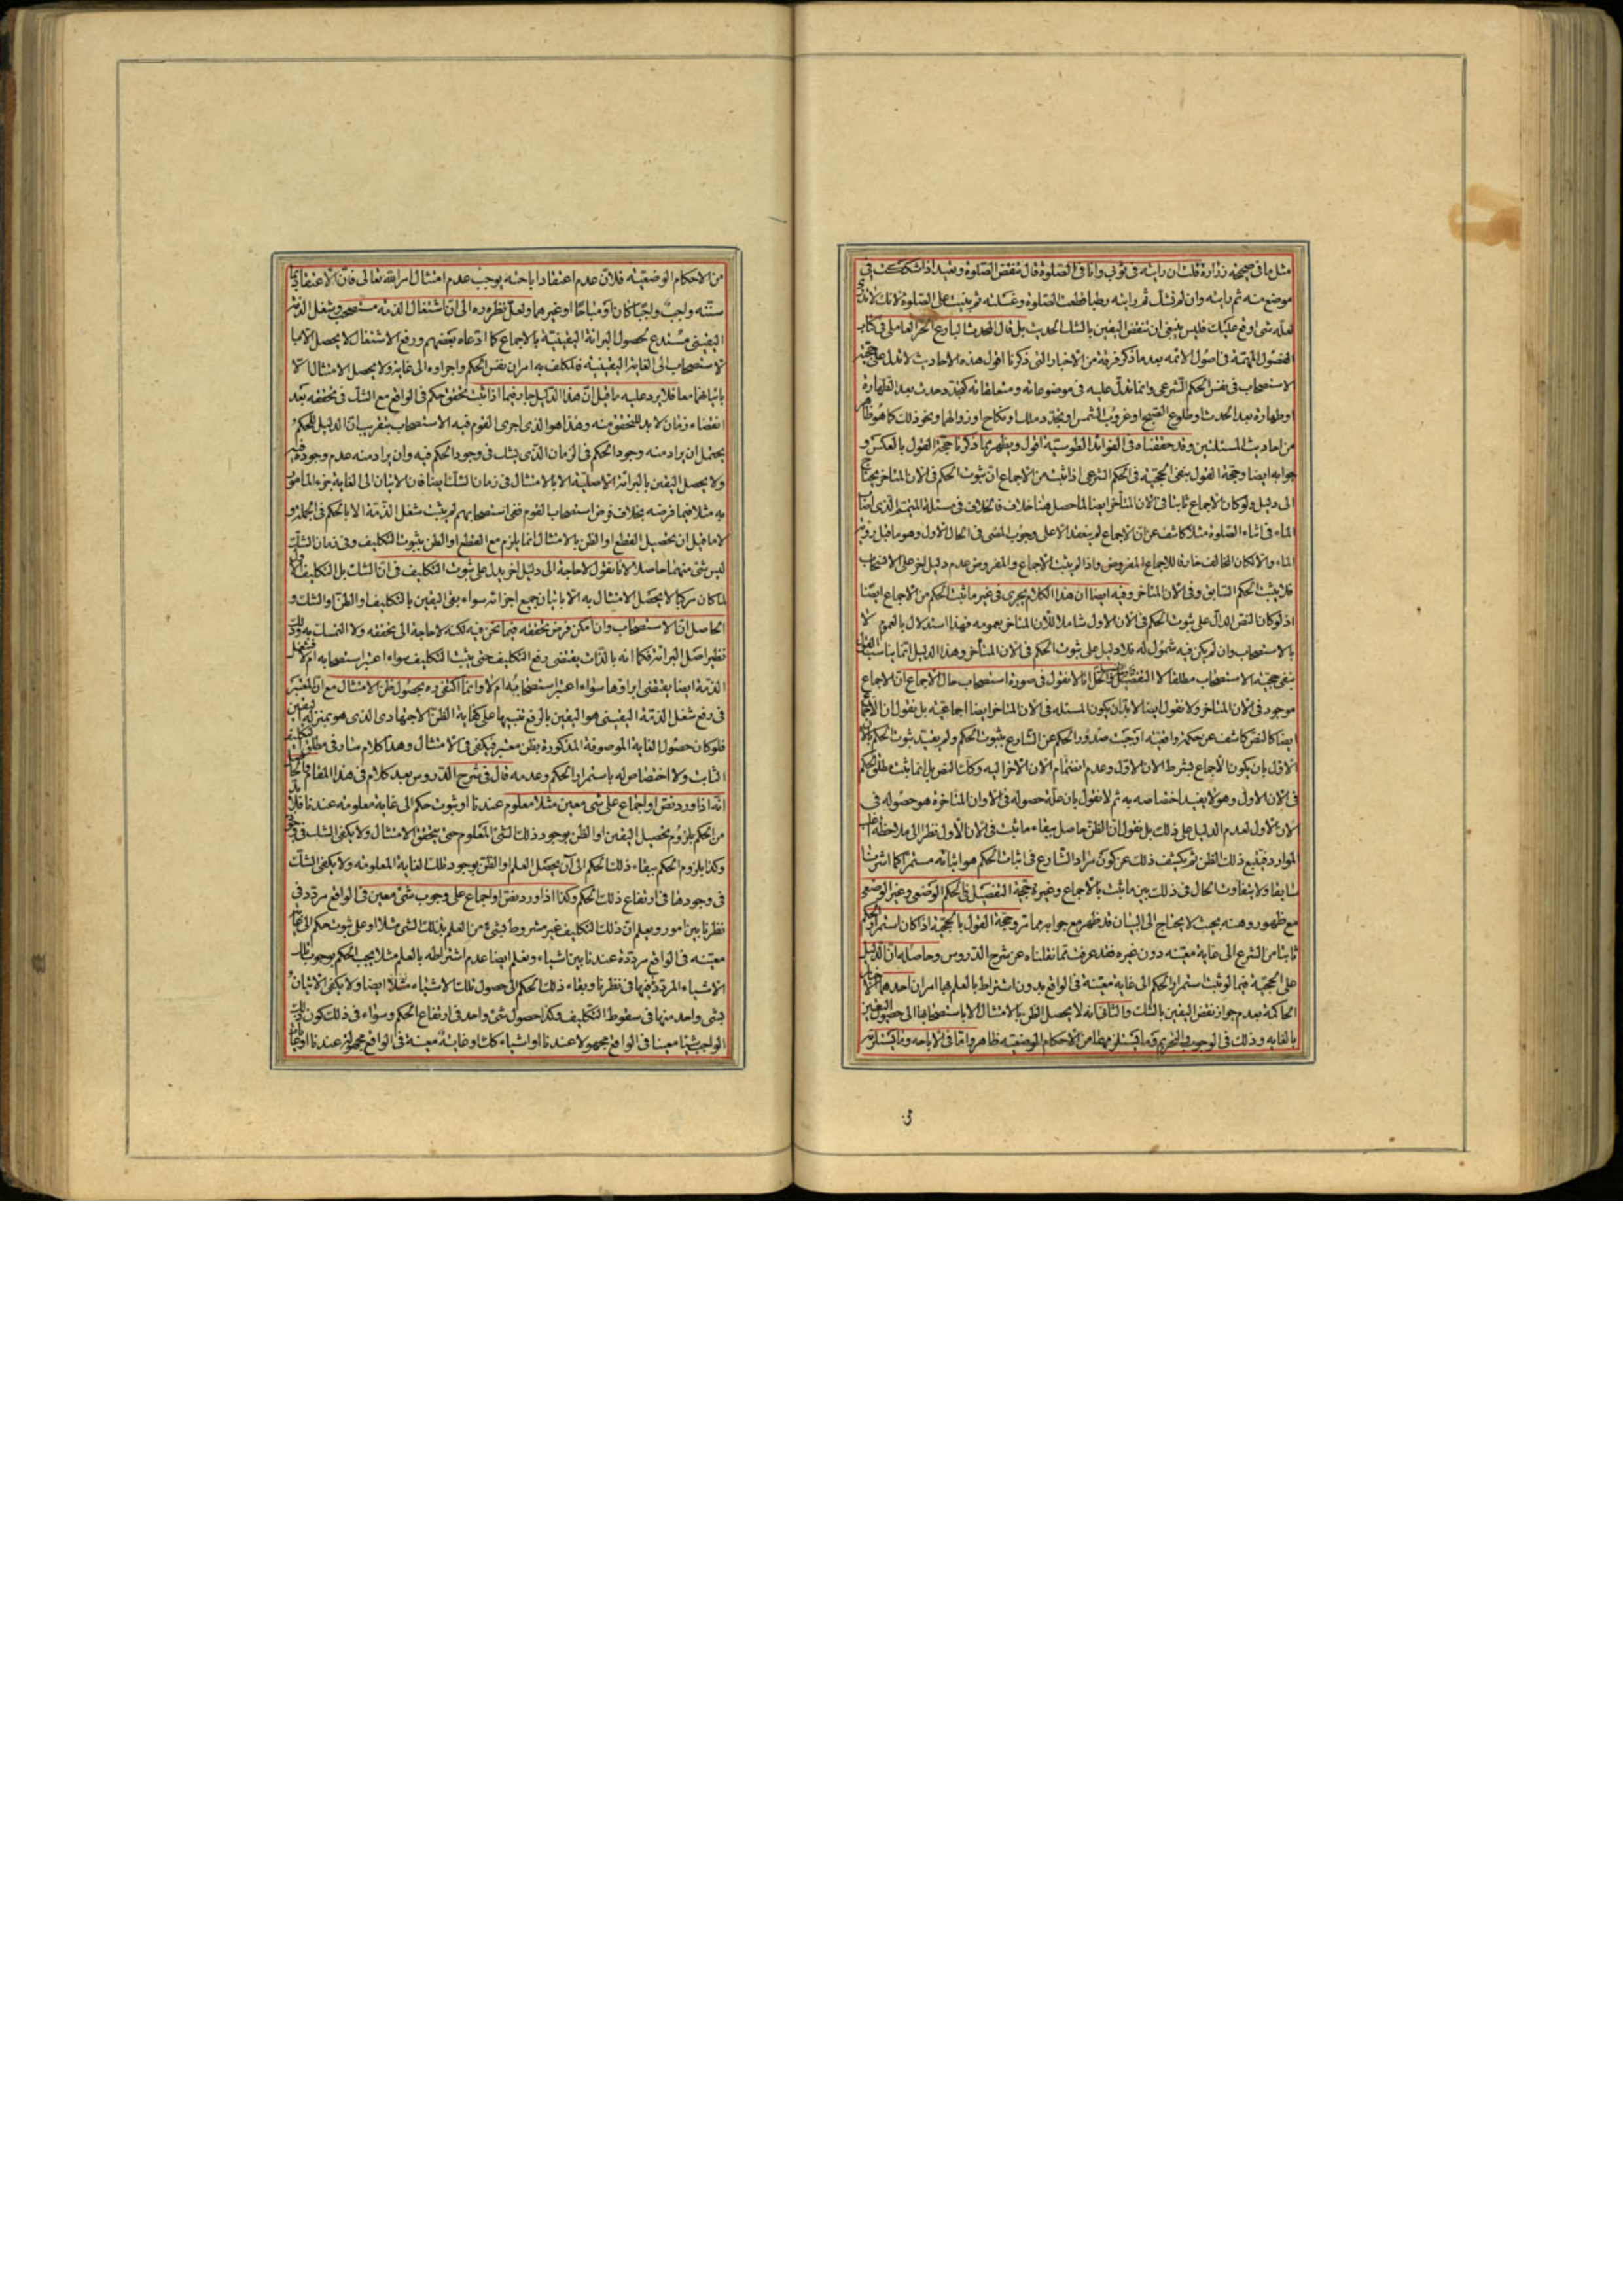 مثل ما فی صحیحة زرارة قلت ان رایته فی ثوبی وانا فی الصلوة قال تنقض الصلوة وتعید اذا شککت فی
موضع منه ثم رایته وان لم تشک ثم رایته رطبا قطعت الصلوة وغسلته ثم بنیت علی الصلوة لانک لا تدری
لعله شی اوقع علیک فلیس ینبغی ان تنقض الیقین بالشک الحدیث بل قال المحدث البارع الحر العاملی فی کتاب
الفصول المهمة فی اصول الائمه بعد ما ذکر فرقة من الاخبار التی ذکرنا اقول هذه الاحادیث لا تدل علی حجیة
الاستصحاب فی نفس الحکم الشرعی وانما تدل علیه فی موضوعاته ومتعلقاته کتجدد حدث بعد الطهارة
او طهارة بعد الحدث او طلوع الصبح او غروب الشمس او تجدد ملک او نکاح او زوالهما ونحو ذلک کما هو ظاهر
من احادیث المسئلتین وقد حققناه فی الفوائد الطوسیة اقول ویظهر بما ذکرنا حجة القول بالعکس و
جوابه ایضا وحجة القول بنفی الحجیة فی الحکم الشرعی اذا ثبت من الاجماع ان ثبوت الحکم فی الان المتاخر یحتاج
الی دلیل ولو کان الاجماع ثابتا فی الان المتاخر ایضا لما حصل هنا خلاف فالخلاف فی مسئلة المتیمم الذی اصاب
الماء فی اثناء الصلوة مثلا کاشف عن ان الاجماع لم ینعقد الا علی وجوب المضی فی الحال الاول وهو ما قبل رویة
الماء والا لکان المخالف خارقا للاجماع المفروض واذا لم یثبت الاجماع والمفروض عدم دلیل اخر علی الاستصحاب
فلا یثبت الحکم السابق فی الان المتاخر وفیه ایضا ان هذا الکلام یجری فی غیر ما ثبت الحکم من الاجماع ایضا
اذ لو کان النص الدال علی ثبوت الحکم فی الان الاول شاملا للآن المتاخر بعمومه فهذا استدلال بالعموم لا
بالاستصحاب وان لم یکن فیه شمول له فلا دلیل علی ثبوت الحکم فی الان المتاخر وهذا الدلیل انما یناسب القول
بنفی حجیة الاستصحاب مطلقا لا التفصیل انا لا نقول فی صورة استصحاب حال الاجماع ان الاجماع
موجود فی الان المتاخر ولا نقول ایضا لا بد ان یکون المسئله فی الان المتاخر ایضا اجماعیه بل نقول ان الاجماع
ایضا کالنص کاشف عن حکمة واقعیه اوجبت صدور الحکم عن الشارع بثبوت الحکم ولم یفید ثبوت الحکم بالان
الاول بان یکون الاجماع بشرط الان الاول وعدم انضمام الان الاخر الیه وکذا النص بل انما یثبت مطلق الحکم
فی الان الاول وهو لا یفید اختصاصه به ثم لا نقول بان علة حصوله فی الاوان المتاخرة هو حصوله فی
الان الاول لعدم الدلیل علی ذلک بل نقول ان الظن حاصل ببقاء ما ثبت فی الان الاول نظرا الی ملاحظة اغلب
الموارد فیتبع ذلک الظن ثم یکشف ذلک عن کون مراد الشارع فی اثبات الحکم هو اثباته مستمرا کما اشرنا
سابقا ولا یتفاوت الحال فی ذلک بین ما یثبت بالاجماع وغیره حجة التفصیل فی الحکم الوضعی وغیر الوضعی
مع ظهور وهنه بحیث لا یحتاج الی البیان قد ظهر مع جوابه مما مر وحجة القول بالحجیة اذا کان استمرار الحکم
ثابتا من الشرع الی غایة معینه دون غیره فقد عرفت مما نقلناه عن شرح الدروس وحاصله ان الدلیل
علی الحجیة فیما لو ثبت استمرار الحکم الی غایة معینة فی الواقع بدون اشتراط بالعلم بها امران احدهما الاخبار
الحاکمة بعدم جواز نقض الیقین بالشک والثانی انه لا یحصل الظن بالامتثال الا باستصحابها الی حصول الیقین
بالغایه وذلک فی الوجوب والتحریم وما یستلزمهما من الاحکام الوضعیه ظاهر واما فی الاباحه وما یستلزمه
من الاحکام الوضعیه فلان عدم اعتقاد اباحته یوجب عدم امتثال امر الله تعالی فان الاعتقاد بما
سنه واجب واجبا کان او مباحا او غیرهما ولعل نظره ره الی ان اشتغال الذمه مستصحب وشغل الذمة
الیقینی مستدع لحصول البرائة الیقینیة بالاجماع کما ادعاه بعضهم ورفع الاشتغال لا یحصل الا با
لاستصحاب الی الغایة الیقینیه فالمکلف به امران نفس الحکم واجراوه الی غایة ولا یحصل الامتثال الا
باتیانهما معا فلا یرد علیه ما قیل ان هذا الدلیل جار فیما اذا ثبت تحقق حکم فی الواقع مع الشک فی تحققه بعد
انقضاء زمان لابد للتحقق منه وهذا هو الذی اجری القوم فیه الاستصحاب بتقریب ان الدلیل للحکم
یحتمل ان یراد منه وجود الحکم فی الزمان الذی یشک فی وجود الحکم فیه وان یراد منه عدم وجوده فیه
ولا یحصل الیقین بالبرائة الاصلیة الا بالامتثال فی زمان الشک ایضا فان الاتیان الی الغایة جزء المامور
به مثلا فیما فرضه بخلاف فرض استصحاب القوم ففی استصحابهم لم یثبت شغل الذمة الا بالحکم فی الجملة و
لا ما قیل ان تحصیل القطع او الظن بالامتثال انما یلزم مع القطع او الظن بثبوت التکلیف وفی زمان الشک
لیس شی منهما حاصلا لانا نقول لا حاجة الی دلیل اخر یدل علی ثبوت التکلیف فی ان الشک بل التکلیف الاول
لما کان مرکبا لا یحصل الامتثال به الا باتیان جمیع اجزائه سواء بقی الیقین بالتکلیف او الظن او الشک و
الحاصل ان الاستصحاب وان امکن فرض تحققه فیما نحن فیه لکنه لا حاجة الی تحققه ولا التمسک به وذلک
نظیر اصل البرائة فکما انه بالذات یقتضی رفع التکلیف حتی یثبت التکلیف سواء اعتبر استصحابه ام لا فشغل
الذمة ایضا یقتضی ابراوها سواء اعتبر استصحابه ام لا وانما اکتفی ره بحصول ظن الامتثال مع ان المعتبر
فی رفع شغل الذمة الیقینی هو الیقین بالرفع تنبیها علی کفایة الظن الاجتهادی الذی هو بمنزلة الیقین
فلو کان حصول الغایة الموصوفة المذکورة بظن معتبر فیکفی فی الامتثال وهذا کلام سار فی مطلق التکلیف
الثابت ولا اختصاص له باستمرار الحکم وعدمه قال فی شرح الدروس بعد کلام فی هذا المقام
انه اذا ورد نص او اجماع علی شی معین مثلا معلوم عندنا او ثبوت حکم الی غایة معلومه عندنا فلا بد
من الحکم بلزوم تحصیل الیقین او الظن بوجود ذلک الشی المعلوم حتی یتحقق الامتثال ولا یکفی الشک فی وجوده
وکذا یلزم الحکم ببقاء ذلک الحکم الی ان یحصل العلم او الظن بوجود تلک الغایة المعلومه ولا یکفی الشک
فی وجودها فی ارتفاع ذلک الحکم وکذا اذا ورد نص او اجماع علی وجوب شی معین فی الواقع مردد فی
نظرنا بین امور ویعلم ان ذلک التکلیف غیر مشروط بشیء من العلم بذلک الشی مثلا او علی ثبوت حکم الی غایة
معینه فی الواقع مرددة عندنا بین اشیاء ونعلم ایضا عدم اشتراطه بالعلم مثلا یجب الحکم بوجوب تلک
الاشیاء المردد فیها فی نظرنا وبقاء ذلک الحکم الی حصول تلک الاشیاء مثلا ایضا ولا یکفی الاتیان
بشی واحد منها فی سقوط التکلیف وکذا حصول شی واحد فی ارتفاع الحکم وسواء فی ذلک کون ذلک
الواجب شیئا معینا فی الواقع مجهولا عندنا او اشیاء کذلک او غایة معینة فی الواقع مجهولة عندنا او غایات